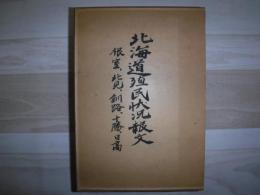 北海道殖民状況報文
根室、北見、釧路、十勝、日高